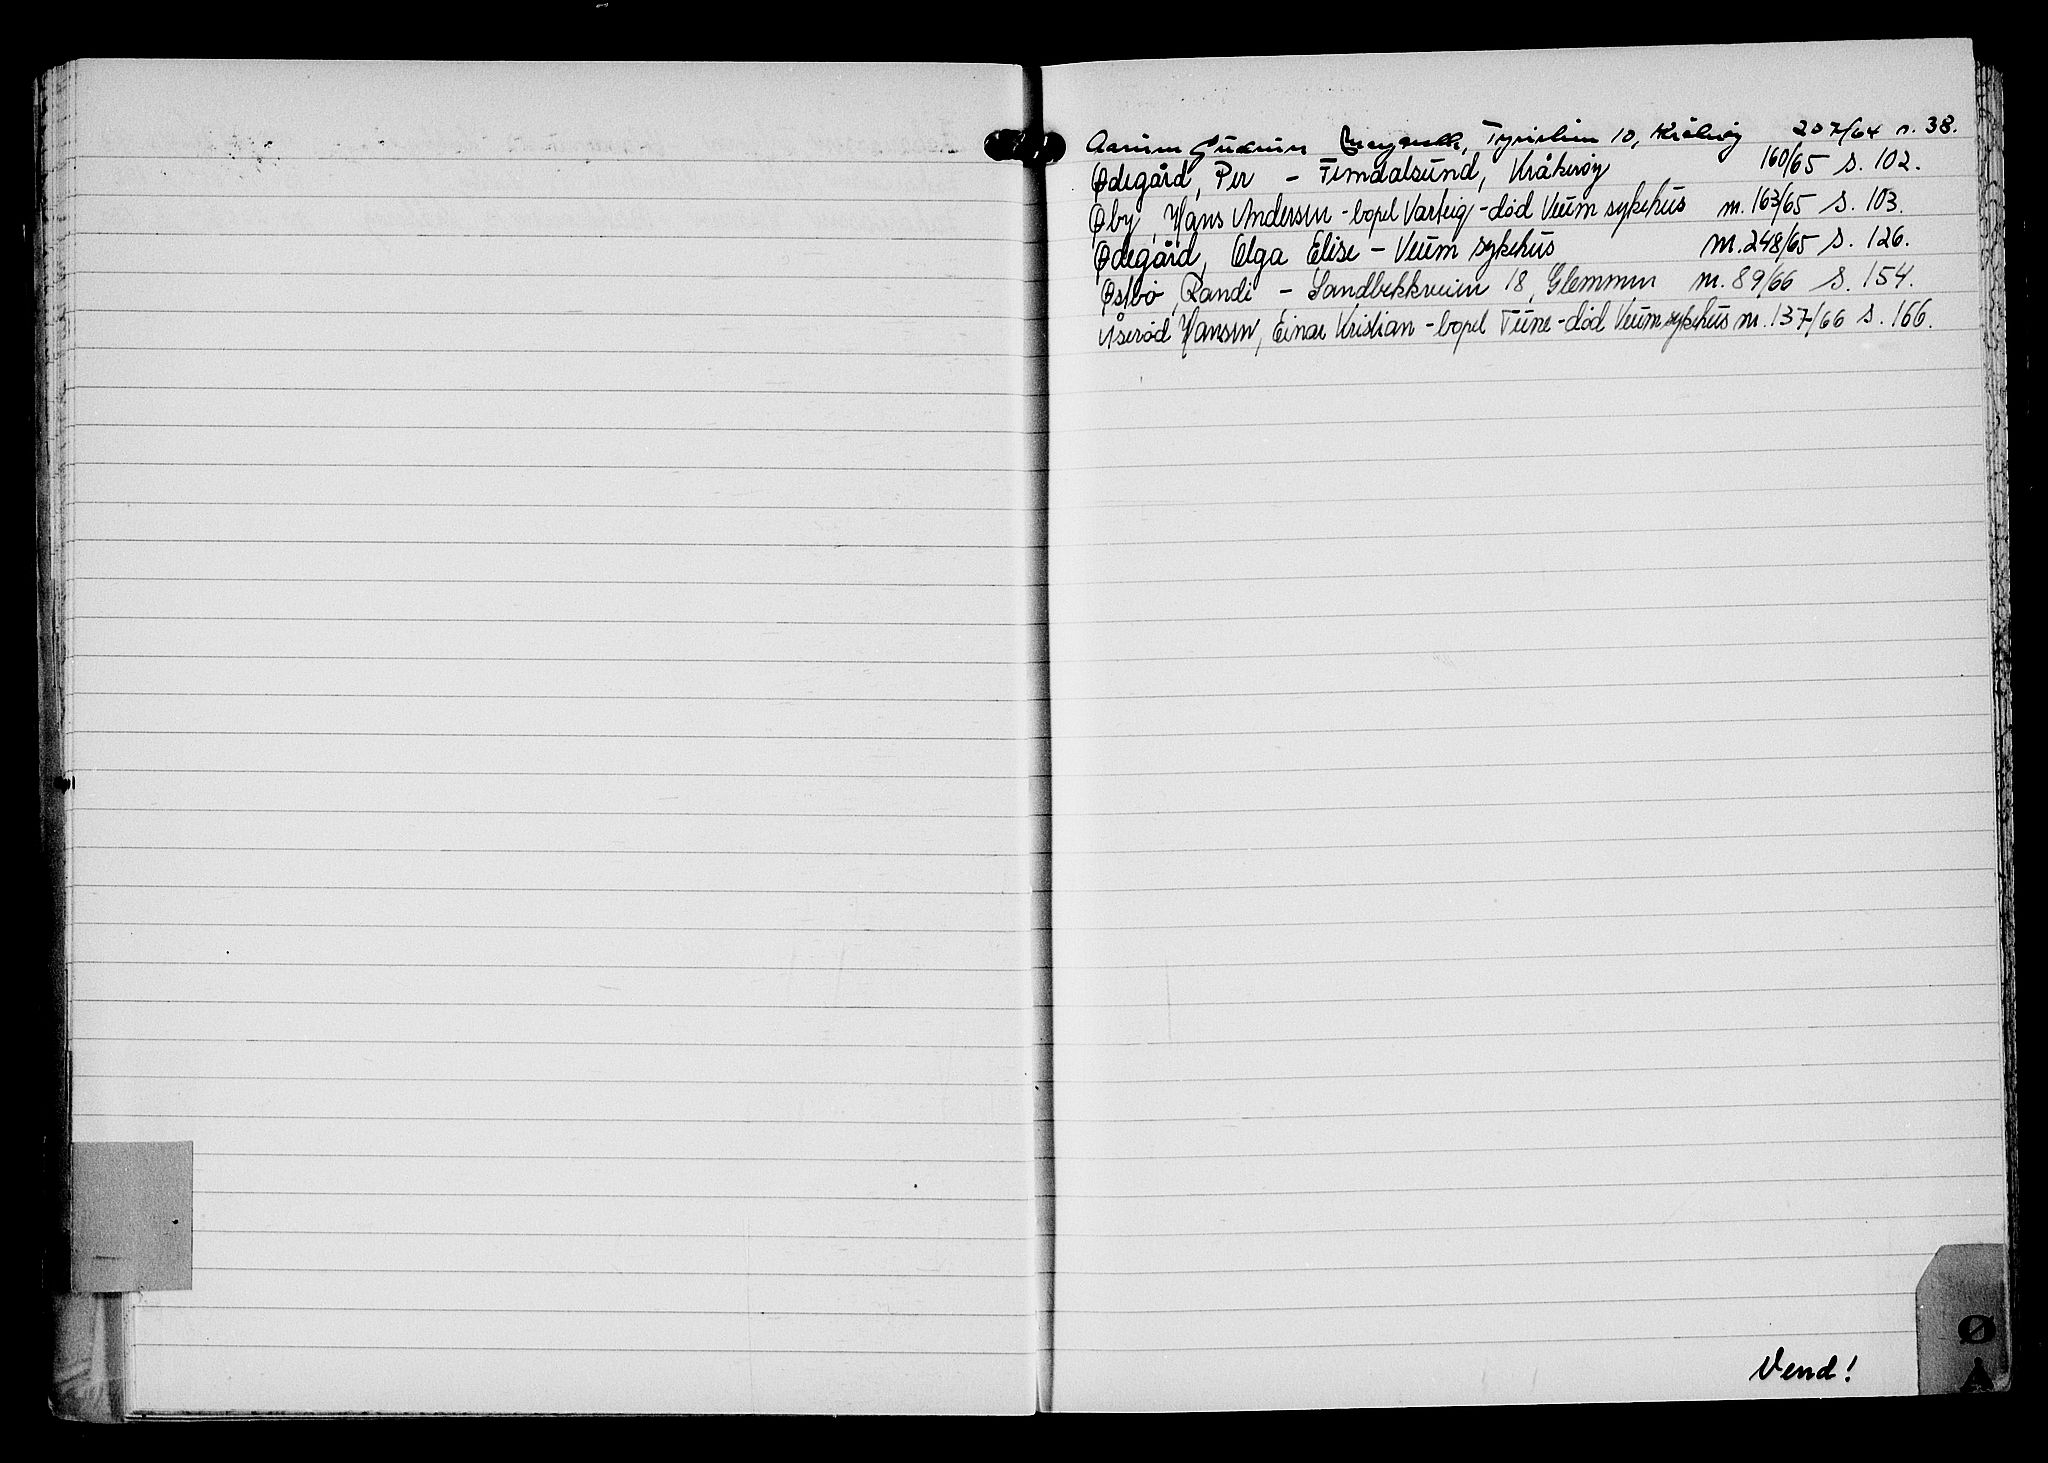 Aarum Gudrun Margrethe, Tyrislien 10, Kråkerøy 207/64 s. 38.
Ødegård, Per - Femdalsund, Kråkerøy 160/65 s. 102.
Øby, Hans Andersen - bopel Varteig - død Veum sykehus m. 163/65 s. 103.
Ødegård, Olga Elise - Veum sykehus m. 248/65 s. 126.
Østbø, Randi - Sandbekkveien 18, Glemmen m. 89/66 s. 154.
Åserød Hansen, Einar Kristian - bopel Tune - død Veum sykehus m. 137/66 s. 166.
Vend!
Ø
Å